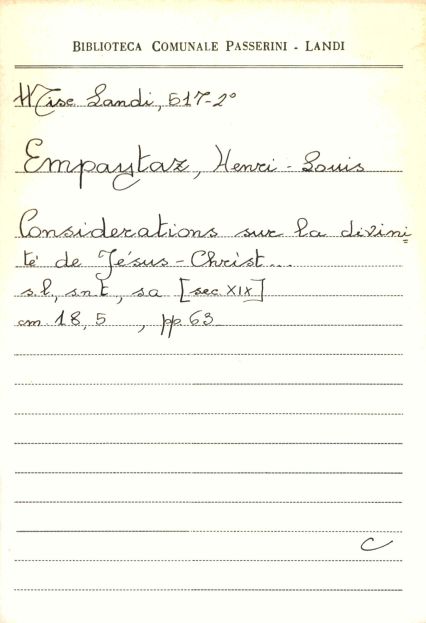 BIBLIOTECA COMUNALE PASSERINI - LANDI
Misc Landi, 517-2°
Empaytaz, Henri - Louis
Considerations sur la divini=
té de Jésus - Christ...
s.l, s.n.t, s.a [sec XIX]
cm. 18,5 , pp. 63
C